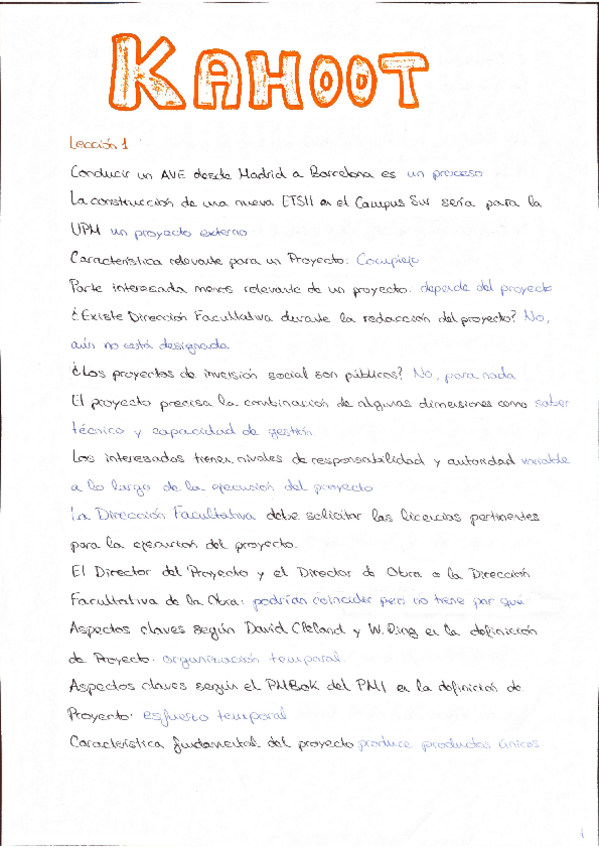 KAHOOT
Lección 1
Conducir un AVE desde Madrid a Barcelona es un proceso
La construcción de una nueva ETSII en el Campus Sur sería para la
UPM un proyecto externo
Característica relevante para un Proyecto: Complejo
Parte interesada menos relevante de un proyecto: depende del proyecto
¿Existe Dirección Facultativa durante la redacción del proyecto? No,
aún no está designada
¿Los proyectos de inversión social son públicos? No, para nada
El proyecto precisa la combinación de algunas dimensiones como saber
técnico y capacidad de gestión
Los interesados tienen niveles de responsabilidad y autoridad variable
a lo largo de la ejecución del proyecto
La Dirección Facultativa debe solicitar las licencias pertinentes
para la ejecución del proyecto.
El Director del Proyecto y el Director de Obra o la Dirección
Facultativa de la Obra: podrían coincidir pero no tiene por qué
Aspectos claves según David Cleland y W. King en la definición
de Proyecto: organización temporal
Aspectos claves según el PMBOK del PMI en la definición de
Proyecto: esfuerzo temporal
Característica fundamental del proyecto produce productos únicos
1